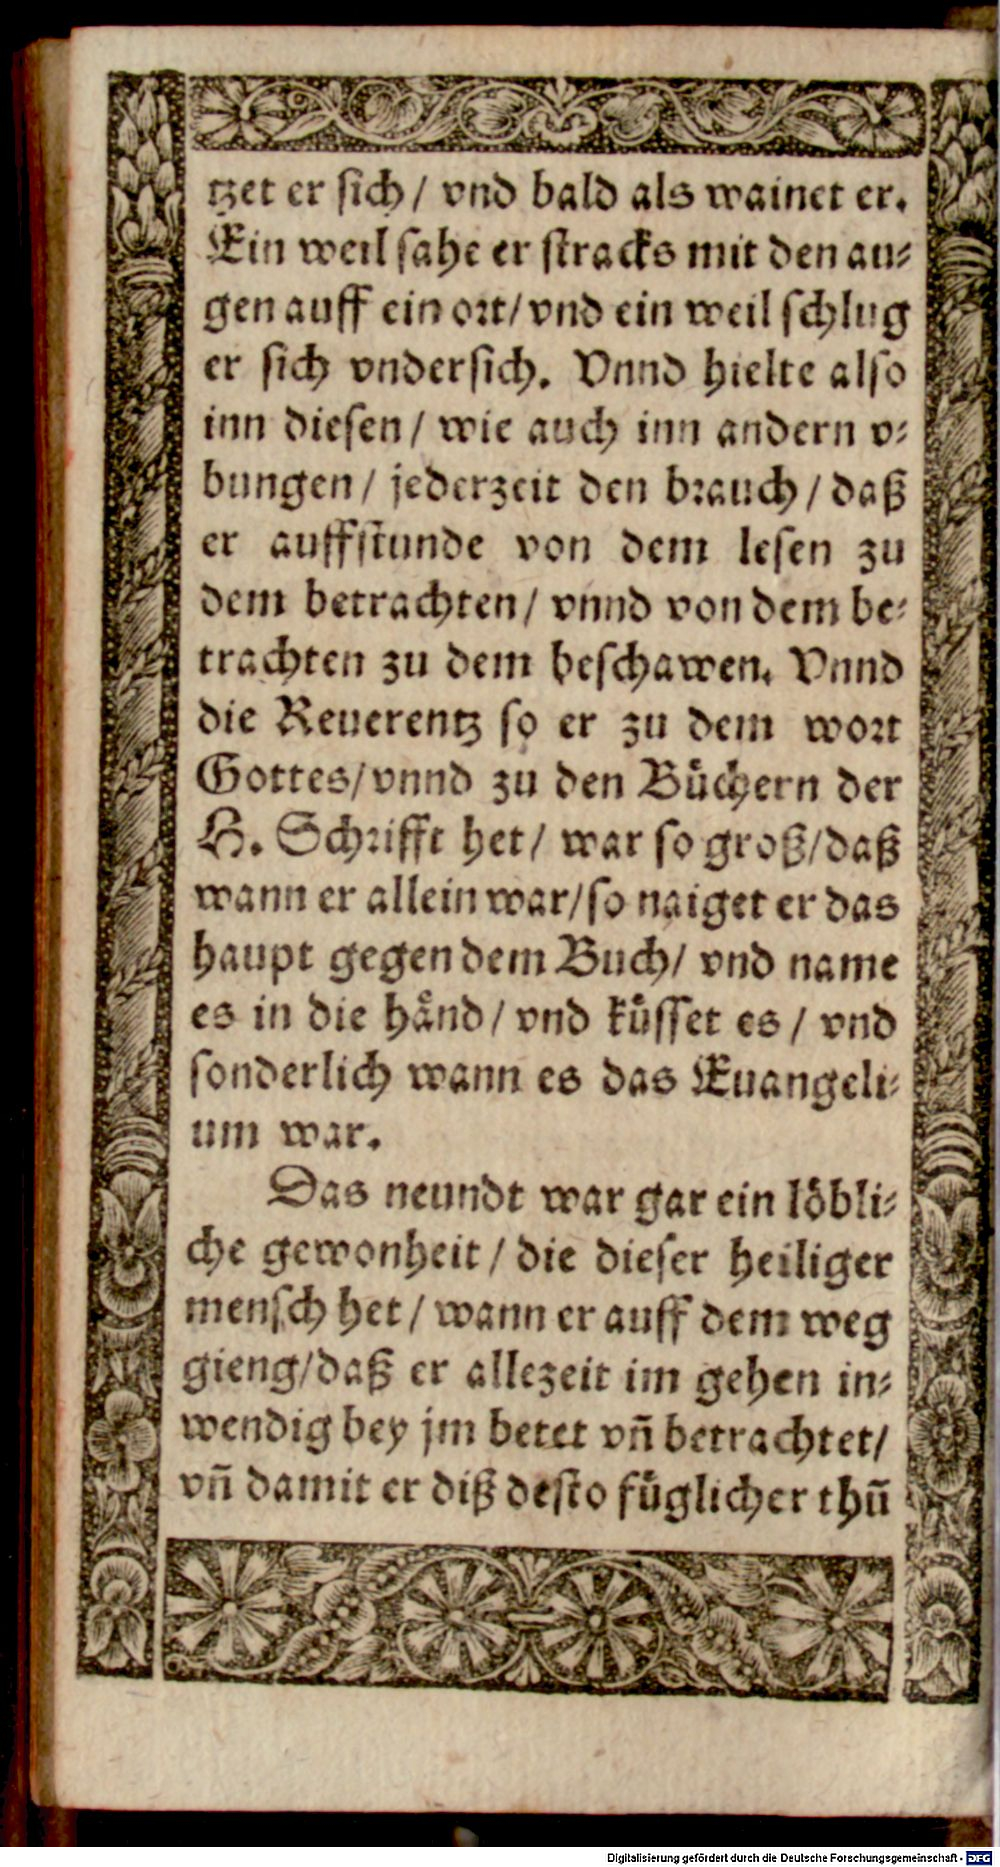 tzet er sich / vnd bald als wainet er.
Ein weil sahe er stracks mit den au-
gen auff ein ort/ vnd ein weil schlug
er sich vndersich. Vnnd hielte also
inn diesen / wie auch inn andern v-
bungen / jederzeit den brauch / daß
er auffstunde von dem lesen zu
dem betrachten / vnnd von dem be-
trachten zu dem beschawen. Vnnd
die Reuerentz so er zu dem wort
Gottes/ vnnd zu den Bůchern der
H. Schrifft het / war so groß/ daß
wann er allein war/ so naiget er das
haupt gegen dem Buch/ vnd name
es in die hånd / vnd kůsset es / vnd
sonderlich wann es das Euangeli-
um war.
Das neundt war gar ein löbli-
che gewonheit / die dieser heiliger
mensch het / wann er auff dem weg
gieng/ daß er allezeit im gehen in-
wendig bey jm betet vñ betrachtet/
vñ damit er diß desto fůglicher thū
Digitalisierung gefördert durch die Deutsche Forschungsgemeinschaft - DFG